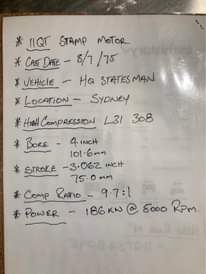 * 11QT STAMP MOTOR
* CAST DATE - 8/7/75
* VEHICLE - HQ STATESMAN
* LOCATION - SYDNEY
* HIGH COMPRESSION L31 308
* BORE - 4 INCH
101.6mm
* STROKE - 3.062 INCH
75.0mm
* COMP RATIO - 9.7:1
* POWER - 186KW @ 5000 RPM